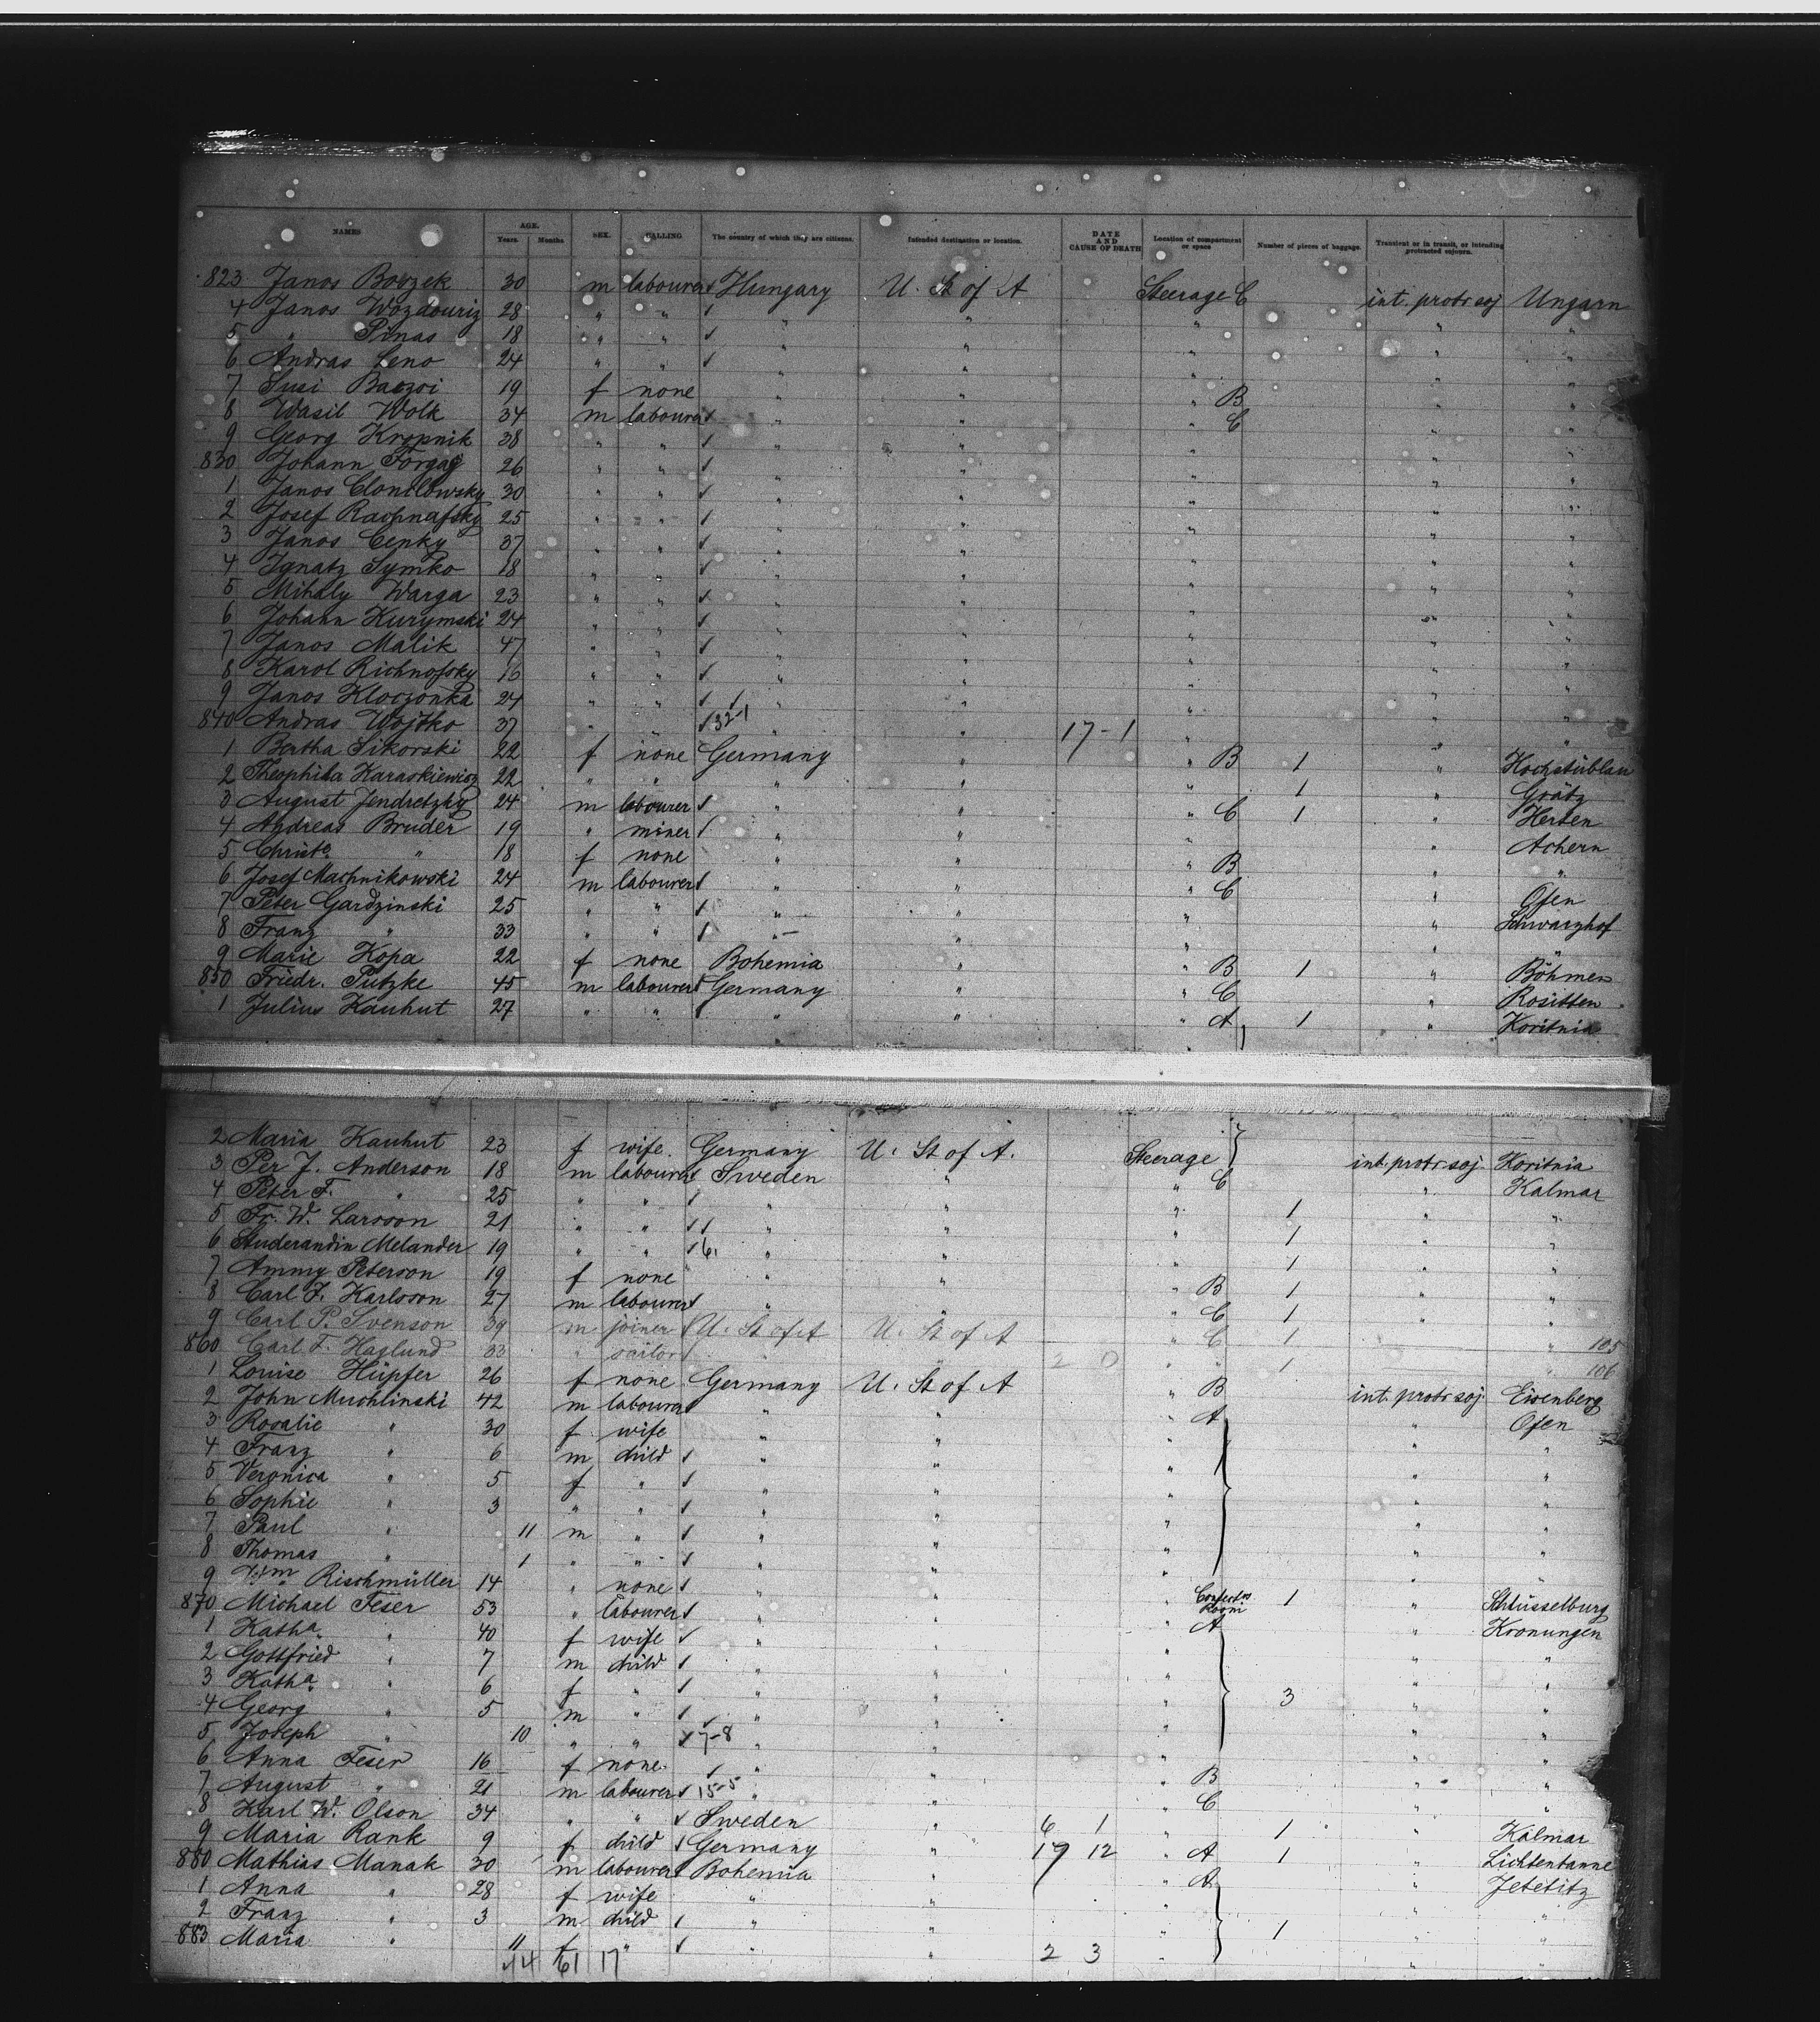 NAMES AGE. Years. Months SEX. CALLING The country of which they are citizens. Intended destination or location. DATE AND CAUSE OF DEATH Location of compartment or space Number of pieces of baggage. Transient or in transit, or intending protracted sojourn.
823 Janos 30 m labourer Hungary U. St of A Steerage C int. protr soj Ungarn
4 Janos Wozdouriz 28 " " " " " " "
5 " Pinas 18 " " " " " " "
6 Andras Leno 24 " " " " " " "
7 Susi 19 f none " " " B " "
8 Wasil Wolk 34 m labourer " " " C " "
9 Georg Kropnik 38 " " " " " " "
830 Johann Forgag 26 " " " " " " "
1 Janos 30 " " " " " " "
2 Josef Rachnafsky 25 " " " " " " "
3 Janos Cenky 37 " " " " " " "
4 Ignatz Symko 18 " " " " " " "
5 Mihaly Warga 23 " " " " " " "
6 Johann Kurymski 24 " " " " " " "
7 Janos Malik 47 " " " " " " "
8 Karol Richnofsky 16 " " " " " " "
9 Janos Kloczonka 24 " " " " " " "
840 Andras Wojtko 37 " " 32-1 " " 17-1 " " "
1 Bertha Sikorski 22 f none Germany " " B 1 " Hochstüblau
2 Theophila Karaskiewicz 22 " " " " " 1 " Gratz
3 August Jendretzky 24 m labourer " " " C 1 " Herten
4 Andreas Bruder 19 " miner " " " " Achern
5 Christe " 18 f none " " " B " "
6 Josef Machnikowski 24 m labourer " " " C " Ofen
7 Peter Gardzinski 25 " " " " " " Schwarzhof
8 Franz " 33 " " " " " " "
9 Marie Kopa 22 f none Bohemia " " B 1 " Böhmen
850 Friedr. Putzke 45 m labourer Germany " " C " Rositten
1 Julius Kauhut 27 " " " " " A 1 " Koritnia
2 Maria Kauhut 23 f wife Germany U. St of A. Steerage int. protr soj. Koritnia
3 Per J. Anderson 18 m labourer Sweden " " C " Kalmar
4 Peter F. " 25 " " " " " 1 " "
5 Fr. W. Larsson 21 " " " " " 1 " "
6 Studerandin Melander 19 " " 6. " " " 1 " "
7 Ammy Peterson 19 f none " " " B 1 " "
8 Carl F. Karlsson 27 m labourer " " " C 1 " "
9 Carl P. Svenson 39 m joiner U. St of A U. St of A " C 1 " 105
860 Carl F. Haglund 33 " sailor " " 2 0 " " 1 " 106
1 Louise Hüpfer 26 f none Germany U. St of A " B int. protr soj. Eisenberg
2 John Muchlinski 42 m labourer " " " A " Ofen
3 Rosalie " 30 f wife " " " " "
4 Franz " 6 m child " " " " "
5 Veronica " 5 f " " " " " "
6 Sophie " 3 " " " " " " "
7 Paul " 11 m " " " " " "
8 Thomas " 1 " " " " " " "
9 Wm Rischmüller 14 " none " " 1 " Schlüsselburg
870 Michael Feser 53 " labourer " " " A " Kronungen
1 Katha " 40 f wife " " " " "
2 Gottfried " 7 m child " " " " "
3 Katha " 6 f " " " " 3 " "
4 Georg " 5 m " " " " " "
5 Joseph " 10 " " 7-8 " " " " "
6 Anna Feser 16 f none " " " B " "
7 August " 21 m labourer 15-5 " " " C " "
8 Karl W. Olson 34 " " Sweden " 6 1 1 " Kalmar
9 Maria Rank 9 f child Germany " 19 12 " A 1 " Lichtentanne
880 Mathias Manak 30 m labourer Bohemia " " A " Jetetitz
1 Anna " 28 f wife " " " " "
2 Franz " 3 m child " " " 1 " "
883 Maria " 11 f " " " 2 3 " " "
44 61 17